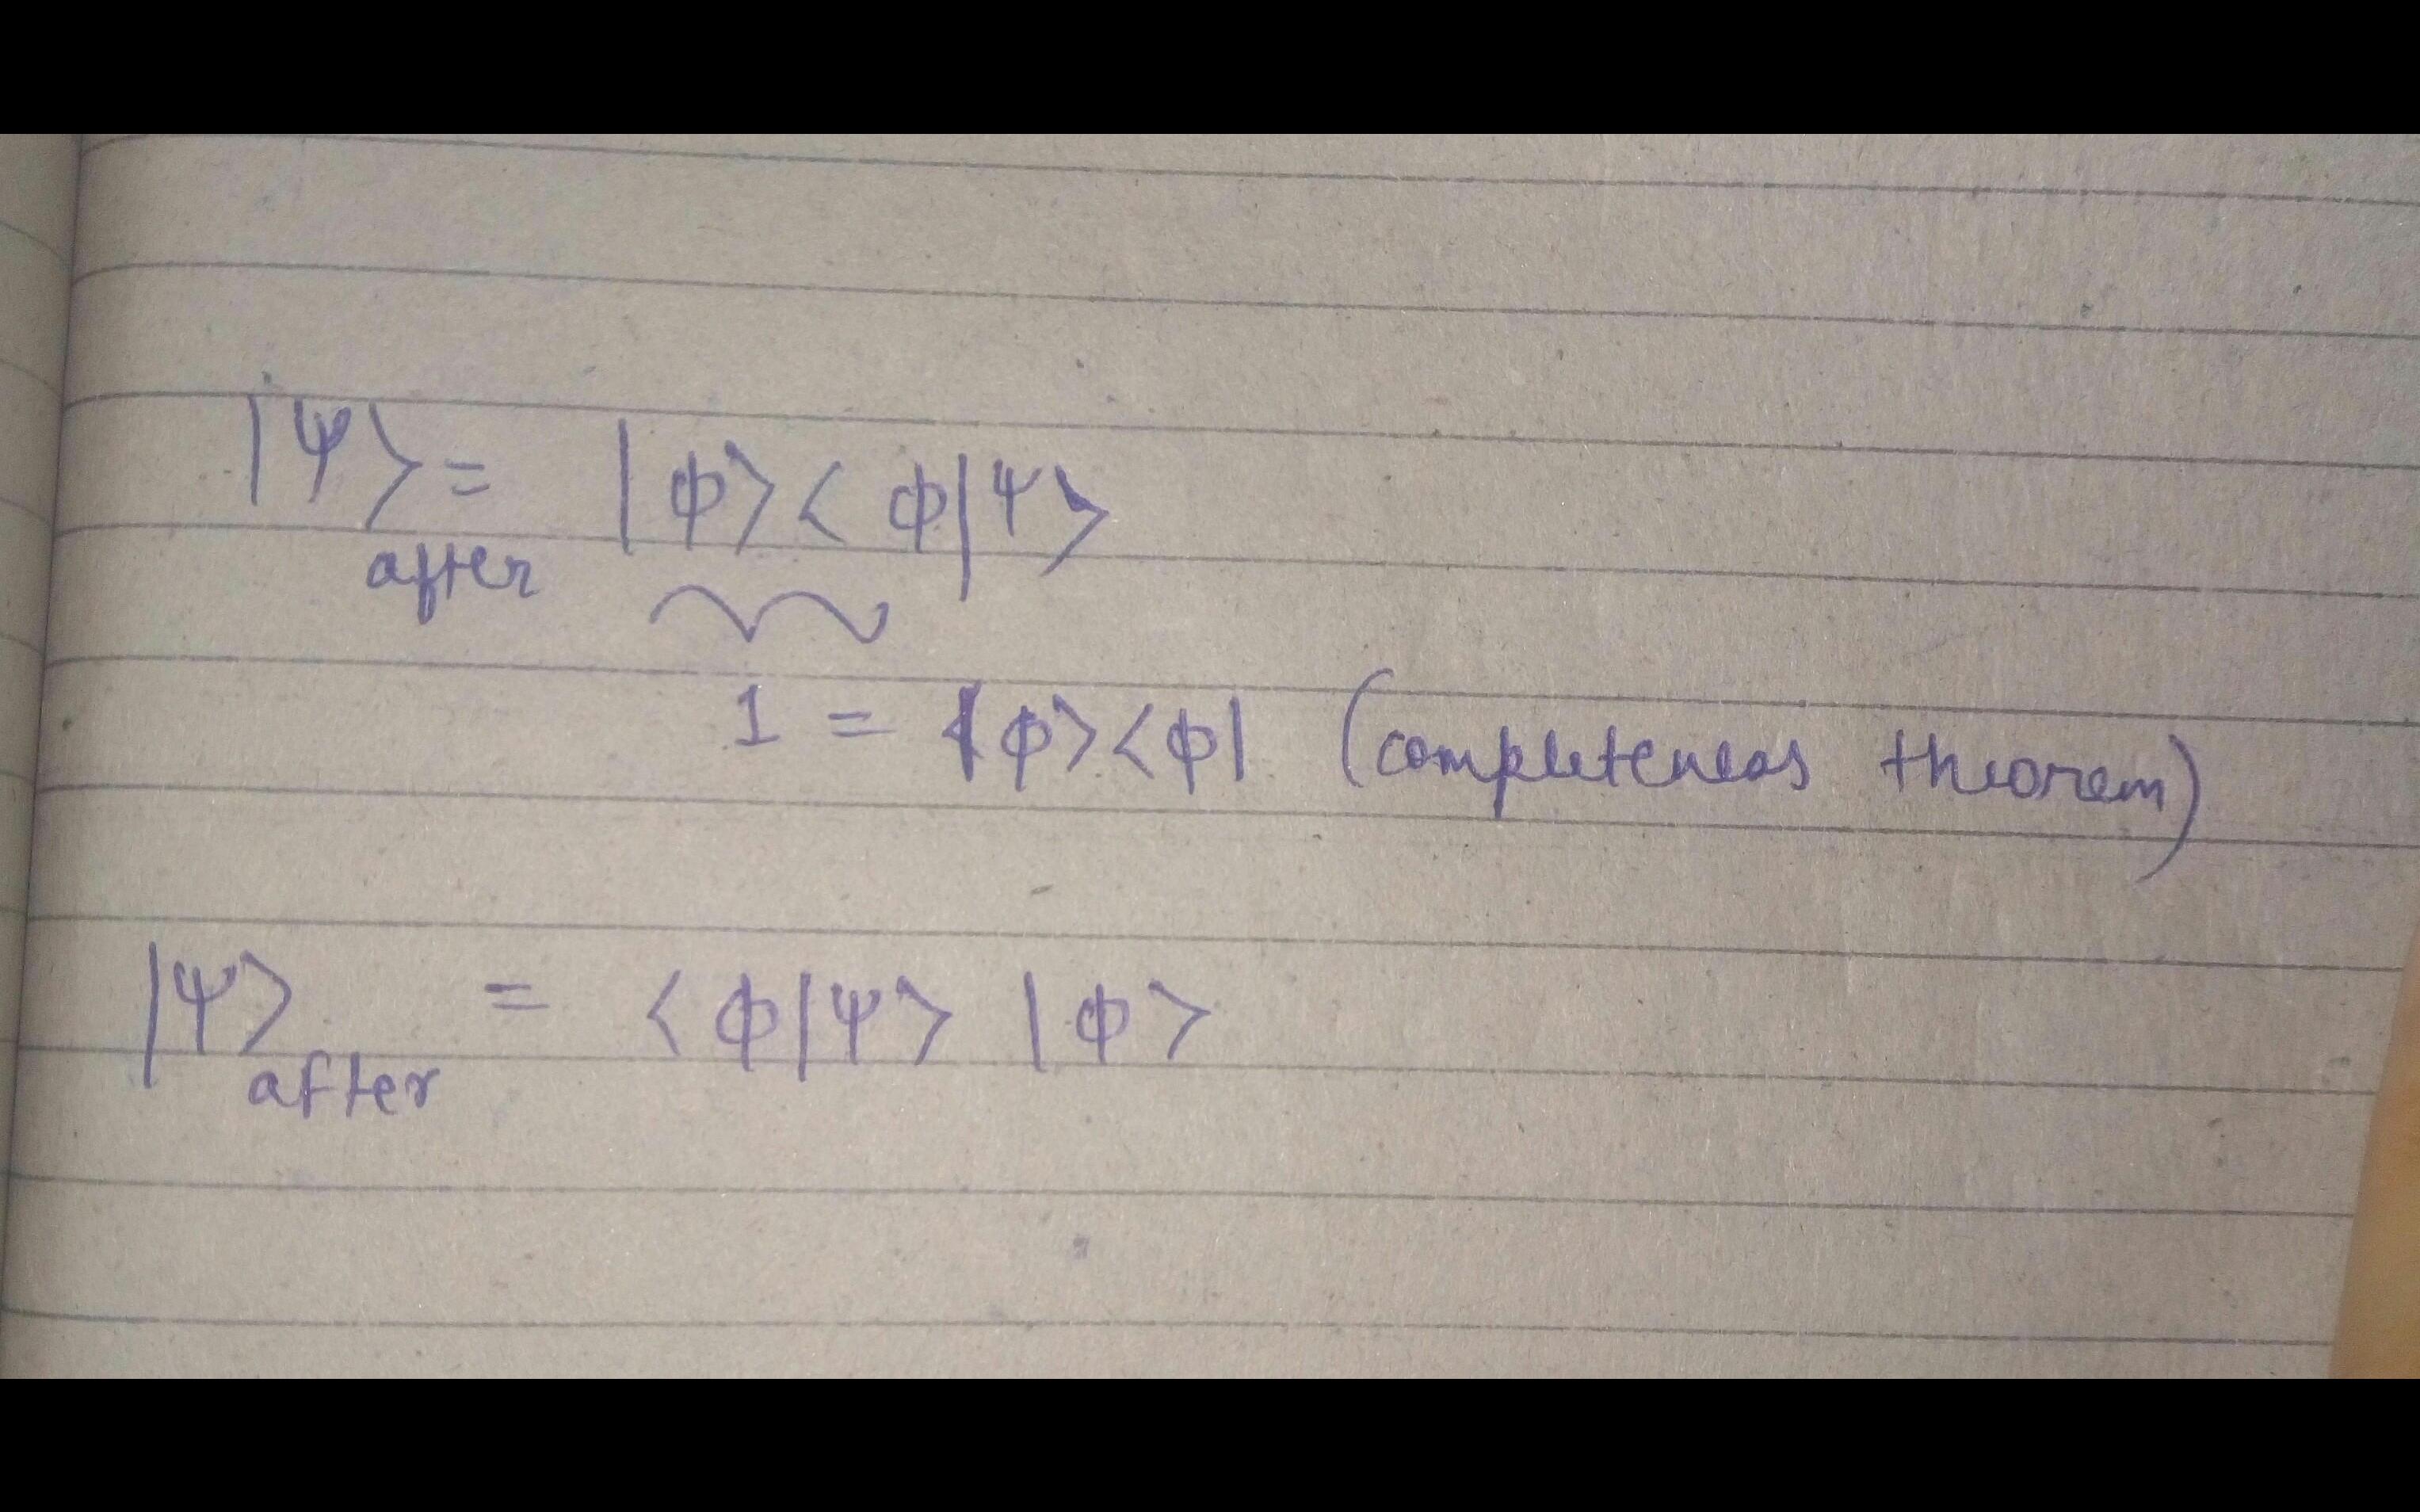 |Ψ⟩after = |ϕ⟩⟨ϕ|Ψ⟩
1 = |ϕ⟩⟨ϕ| (completeness theorem)
|Ψ⟩after = ⟨ϕ|Ψ⟩ |ϕ⟩